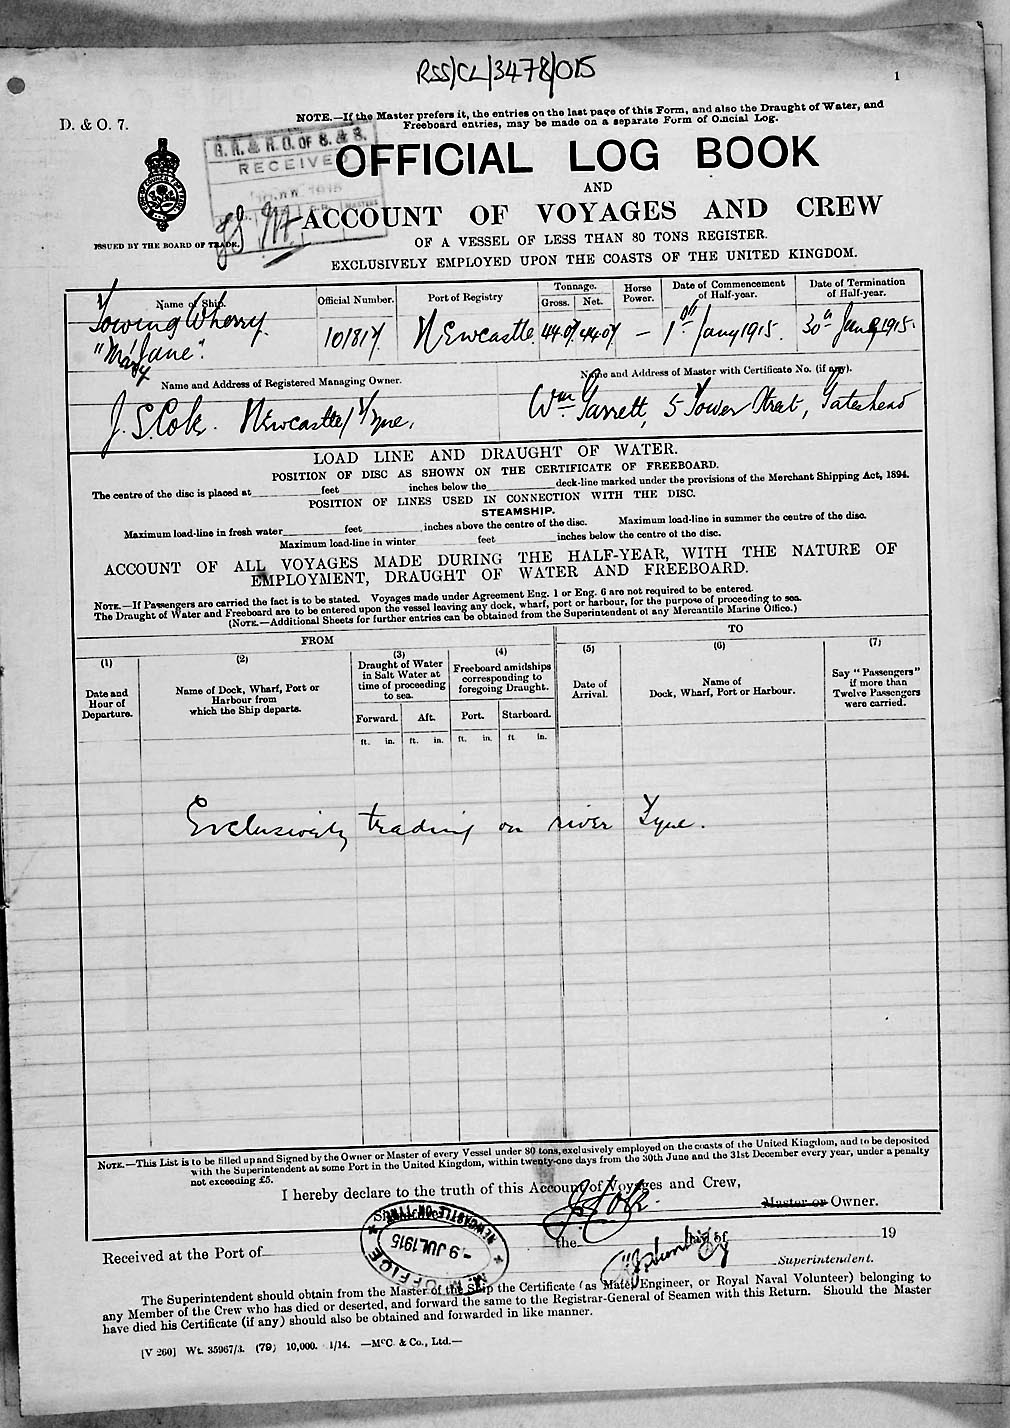 RSS/CL/3478/015
1
D. & O. 7.
NOTE.—If the Master prefers it, the entries on the last page of this Form, and also the Draught of Water, and
Freeboard entries, may be made on a separate Form of Official Log.
G. R. & R. O. OF S. & S.
RECEIVED
OFFICIAL LOG BOOK
AND
ACCOUNT OF VOYAGES AND CREW
ISSUED BY THE BOARD OF TRADE.
OF A VESSEL OF LESS THAN 80 TONS REGISTER.
EXCLUSIVELY EMPLOYED UPON THE COASTS OF THE UNITED KINGDOM.
Name of Ship. Official Number. Port of Registry Tonnage. Gross. Net. Horse Power. Date of Commencement of Half-year. Date of Termination of Half-year.
Towing Wherry 101817 Newcastle 44.07 44.07 — 1st Jany 1915. 30th June 1915.
"Mary Jane".
Name and Address of Registered Managing Owner. Name and Address of Master with Certificate No. (if any).
J. S. Newcastle/Tyne, Wm Garrett, 5 Tower Street, Gateshead
LOAD LINE AND DRAUGHT OF WATER.
POSITION OF DISC AS SHOWN ON THE CERTIFICATE OF FREEBOARD.
The centre of the disc is placed at feet inches below the deck-line marked under the provisions of the Merchant Shipping Act, 1894.
POSITION OF LINES USED IN CONNECTION WITH THE DISC.
STEAMSHIP.
Maximum load-line in fresh water feet inches above the centre of the disc. Maximum load-line in summer the centre of the disc.
Maximum load-line in winter feet inches below the centre of the disc.
ACCOUNT OF ALL VOYAGES MADE DURING THE HALF-YEAR, WITH THE NATURE OF
EMPLOYMENT, DRAUGHT OF WATER AND FREEBOARD.
NOTE.—If Passengers are carried the fact is to be stated. Voyages made under Agreement Eng. 1 or Eng. 6 are not required to be entered.
The Draught of Water and Freeboard are to be entered upon the vessel leaving any dock, wharf, port or harbour, for the purpose of proceeding to sea.
(NOTE.—Additional Sheets for further entries can be obtained from the Superintendent of any Mercantile Marine Office.)
FROM TO
(1) (2) (3) (4) (5) (6) (7)
Date and Hour of Departure.
Name of Dock, Wharf, Port or Harbour from which the Ship departs.
Draught of Water in Salt Water at time of proceeding to sea.
Freeboard amidships corresponding to foregoing Draught.
Date of Arrival.
Name of Dock, Wharf, Port or Harbour.
Say "Passengers" if more than Twelve Passengers were carried.
Forward. Aft. Port. Starboard.
ft. in. ft. in. ft. in. ft in.
Exclusively trading on river Tyne.
NOTE.—This List is to be filled up and Signed by the Owner or Master of every Vessel under 80 tons, exclusively employed on the coasts of the United Kingdom, and to be deposited
with the Superintendent at some Port in the United Kingdom, within twenty-one days from the 30th June and the 31st December every year, under a penalty
not exceeding £5.
I hereby declare to the truth of this Account of Voyages and Crew,
Master or Owner.
NEWCASTLE-ON-TYNE
-9 JUL 1915
M. M. OFFICE
Received at the Port of the day of 19
Superintendent.
The Superintendent should obtain from the Master of the Ship the Certificate (as Mate, Engineer, or Royal Naval Volunteer) belonging to
any Member of the Crew who has died or deserted, and forward the same to the Registrar-General of Seamen with this Return. Should the Master
have died his Certificate (if any) should also be obtained and forwarded in like manner.
[V 260] Wt. 35967/3. (79) 10,000. 1/14. —McC. & Co., Ltd.—